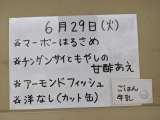 6月29日(火)
☆マーボーはるさめ
☆チンゲンサイともやしの
甘酢あえ
☆アーモンドフィッシュ
☆洋なし(カット缶)
ごはん
牛乳